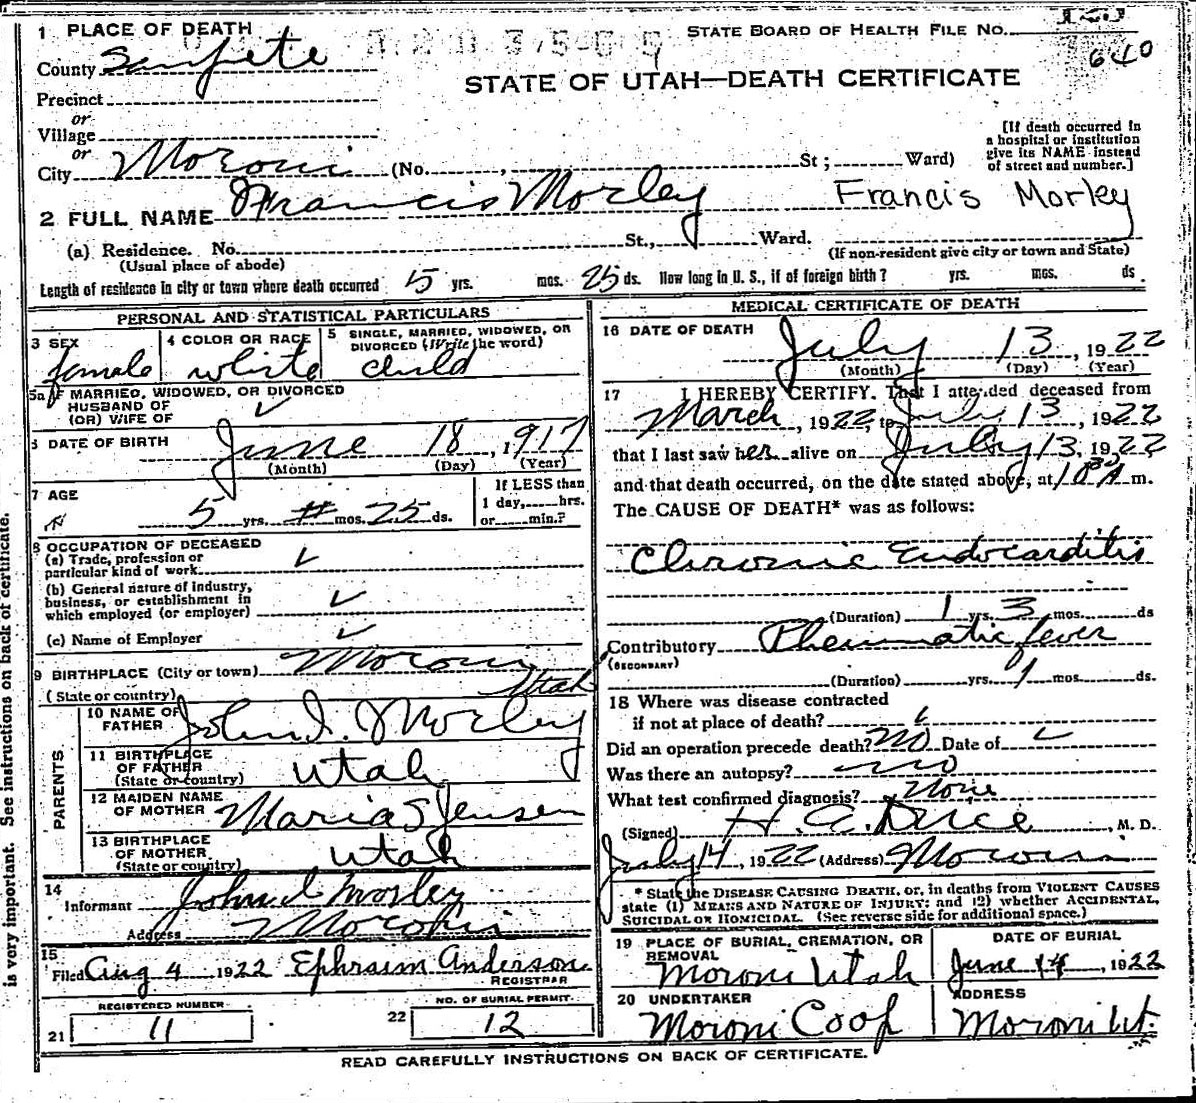 1 PLACE OF DEATH
STATE BOARD OF HEALTH FILE No.
County Sanpete
640
STATE OF UTAH—DEATH CERTIFICATE
Precinct
or
Village
or
City Moroni (No. , St ; Ward)
[If death occurred in a hospital or institution give its NAME instead of street and number.]
2 FULL NAME Francis Morley Francis Morley
(a) Residence. No. St., Ward.
(Usual place of abode) (If non-resident give city or town and State)
Length of residence in city or town where death occurred 5 yrs. mos. 25 ds. How long in U. S., if of foreign birth? yrs. mos. ds
PERSONAL AND STATISTICAL PARTICULARS
3 SEX female
4 COLOR OR RACE white
5 SINGLE, MARRIED, WIDOWED, OR DIVORCED (Write the word) child
5a IF MARRIED, WIDOWED, OR DIVORCED
HUSBAND OF
(OR) WIFE OF ✓
6 DATE OF BIRTH June 18, 1917
(Month) (Day) (Year)
7 AGE
5 yrs. # mos. 25 ds.
If LESS than
1 day, hrs.
or min.?
8 OCCUPATION OF DECEASED
(a) Trade, profession or
particular kind of work ✓
(b) General nature of industry,
business, or establishment in
which employed (or employer) ✓
(c) Name of Employer ✓
9 BIRTHPLACE (City or town) Moroni
(State or country) Utah
PARENTS
10 NAME OF
FATHER John I. Morley
11 BIRTHPLACE
OF FATHER
(State or country) Utah
12 MAIDEN NAME
OF MOTHER Maria S Jensen
13 BIRTHPLACE
OF MOTHER
(State or country) Utah
14
Informant John I Morley
Address Moroni
15
Filed Aug 4 1922 Ephraim Anderson
REGISTRAR
REGISTERED NUMBER
21 11
NO. OF BURIAL PERMIT
22 12
MEDICAL CERTIFICATE OF DEATH
16 DATE OF DEATH July 13, 1922
(Month) (Day) (Year)
17 I HEREBY CERTIFY. That I attended deceased from
March, 1922, to July 13, 1922
that I last saw her alive on July 13, 1922
and that death occurred, on the date stated above, at 10 30 A m.
The CAUSE OF DEATH* was as follows:
Chronic Endocarditis
(Duration) 1 yrs. 3 mos. ds
Contributory Rheumatic fever
(SECONDARY)
(Duration) yrs. 1 mos. ds.
18 Where was disease contracted
if not at place of death? ✓
Did an operation precede death? No Date of ✓
Was there an autopsy? no
What test confirmed diagnosis? None
(Signed) H. E. Dice, M. D.
July 14, 1922 (Address) Moroni
* State the DISEASE CAUSING DEATH, or, in deaths from VIOLENT CAUSES
state (1) MEANS AND NATURE OF INJURY; and (2) whether ACCIDENTAL,
SUICIDAL OR HOMICIDAL. (See reverse side for additional space.)
19 PLACE OF BURIAL, CREMATION, OR
REMOVAL
Moroni Utah
DATE OF BURIAL
June 14, 1922
20 UNDERTAKER
Moroni Coop
ADDRESS
Moroni Ut.
READ CAREFULLY INSTRUCTIONS ON BACK OF CERTIFICATE.
is very important. See instructions on back of certificate.